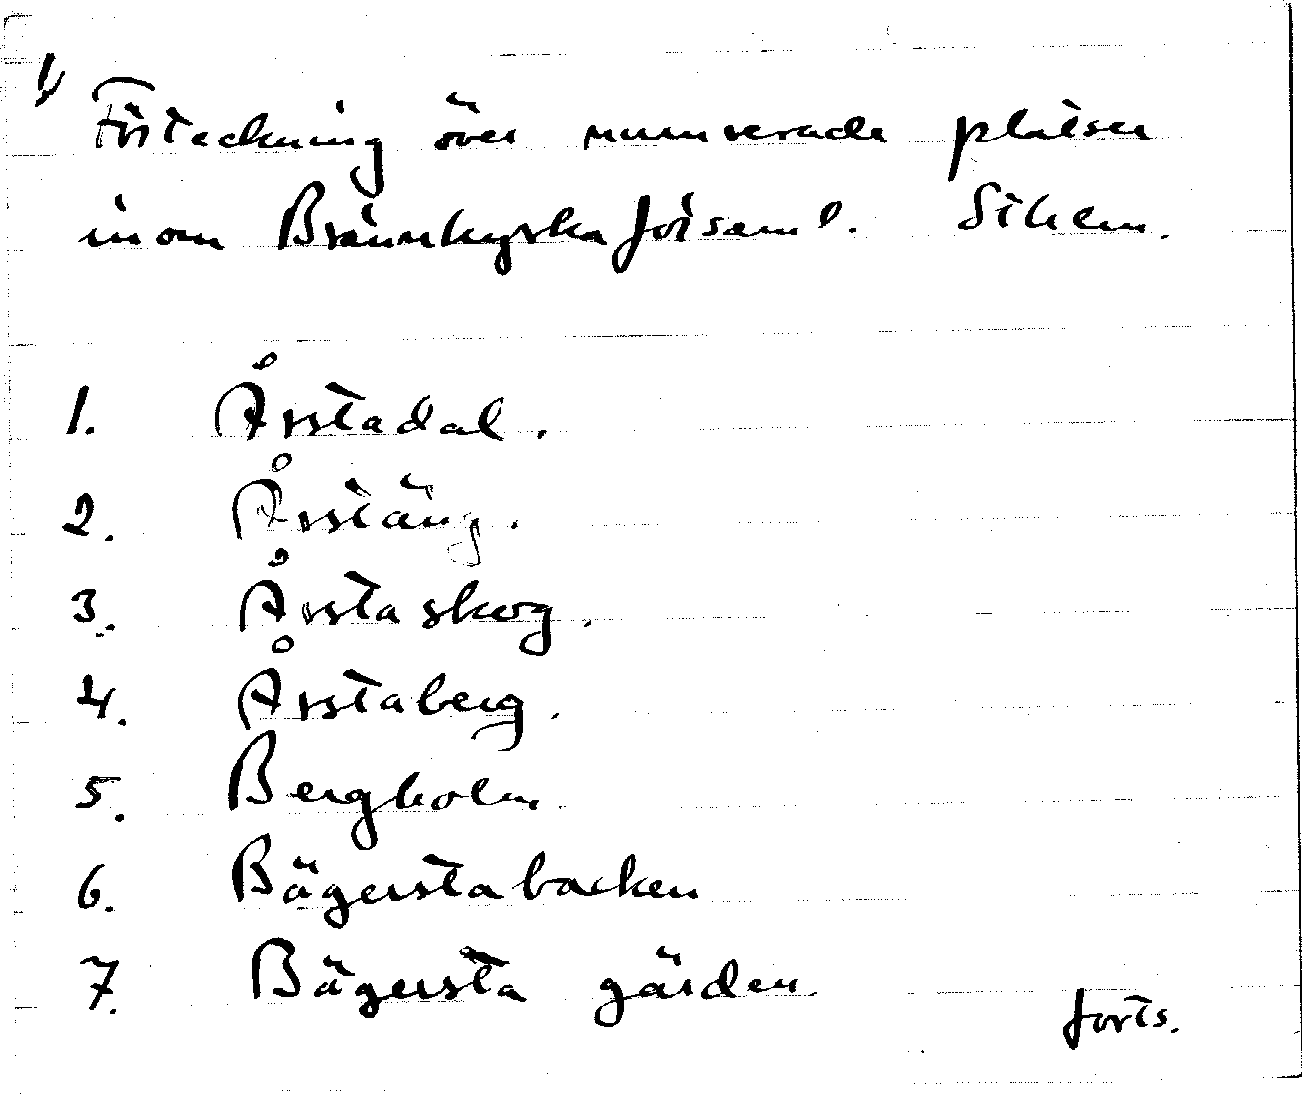 1)
Förteckning över numrerade platser
inom Brännkyrka församl. Sthlm.
1. Årstadal.
2. Årstäng.
3. Årstaskog.
4. Årstaberg.
5. Bergholm.
6. Bägerstabacken
7. Bägersta gärden
forts.